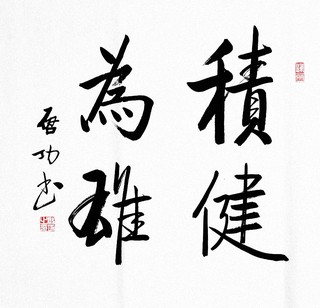 積健
為雄
啓功書